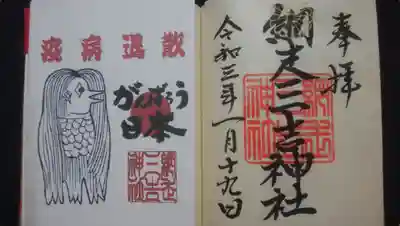 疫病退散
がんばろう
日本
網走
三吉
神社
奉拝
網走三吉神社
網走
神社
令和三年一月十九日